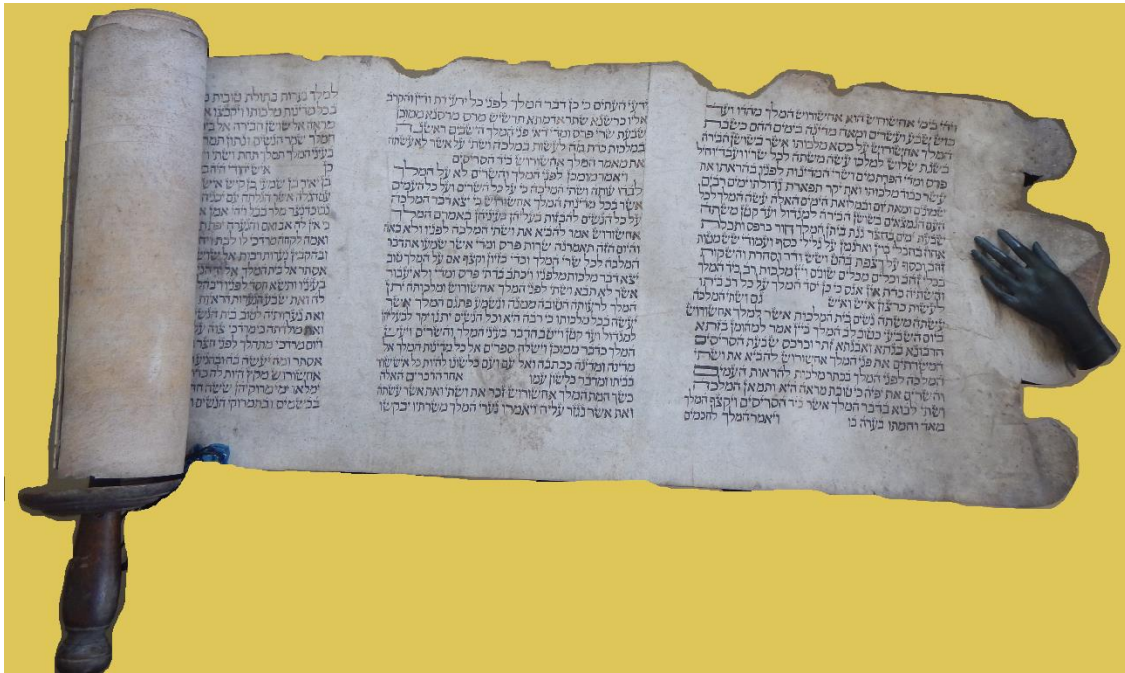 ויהי בימי אחשורוש הוא אחשורוש המלך מהדו ועד
כוש שבע ועשרים ומאה מדינה בימים ההם כשבת
המלך אחשורוש על כסא מלכותו אשר בשושן הבירה
בשנת שלוש למלכו עשה משתה לכל שריו ועבדיו חיל
פרס ומדי הפרתמים ושרי המדינות לפניו בהראתו את
עשר כבוד מלכותו ואת יקר תפארת גדולתו ימים רבים
שמונים ומאת יום ובמלואת הימים האלה עשה המלך לכל
העם הנמצאים בשושן הבירה למגדול ועד קטן משתה
שבעת ימים בחצר גנת ביתן המלך חור כרפס ותכלת
אחוז בחבלי בוץ וארגמן על גלילי כסף ועמודי שש מטות
זהב וכסף על רצפת בהט ושש ודר וסחרת והשקות
בכלי זהב וכלים מכלים שונים ויין מלכות רב כיד המלך
והשתיה כדת אין אנס כי כן יסד המלך על כל רב ביתו
לעשות כרצון איש ואיש גם ושתי המלכה
עשתה משתה נשים בית המלכות אשר למלך אחשורוש
ביום השביעי כטוב לב המלך ביין אמר למהומן בזתא
חרבונא בגתא ואבגתא זתר וכרכס שבעת הסריסים
המשרתים את פני המלך אחשורוש להביא את ושתי
המלכה לפני המלך בכתר מלכות להראות העמים
והשרים את יפיה כי טובת מראה היא ותמאן המלכה
ושתי לבוא בדבר המלך אשר ביד הסריסים ויקצף המלך
מאד וחמתו בערה בו ויאמר המלך לחכמים
ידעי העתים כי כן דבר המלך לפני כל ידעי דת ודין והקרב
אליו כרשנא שתר אדמתא תרשיש מרס מרסנא ממוכן
שבעת שרי פרס ומדי ראי פני המלך הישבים ראשנה
במלכות כדת מה לעשות במלכה ושתי על אשר לא עשתה
את מאמר המלך אחשורוש ביד הסריסים
ויאמר מומכן לפני המלך והשרים לא על המלך
לבדו עותה ושתי המלכה כי על כל השרים ועל כל העמים
אשר בכל מדינות המלך אחשורוש כי יצא דבר המלכה
על כל הנשים להבזות בעליהן בעיניהן באמרם המלך
אחשורוש אמר להביא את ושתי המלכה לפניו ולא באה
והיום הזה תאמרנה שרות פרס ומדי אשר שמעו את דבר
המלכה לכל שרי המלך וכדי בזיון וקצף אם על המלך טוב
יצא דבר מלכות מלפניו ויכתב בדתי פרס ומדי ולא יעבור
אשר לא תבוא ושתי לפני המלך אחשורוש ומלכותה יתן
המלך לרעותה הטובה ממנה ונשמע פתגם המלך אשר
יעשה בכל מלכותו כי רבה היא וכל הנשים יתנו יקר לבעליהן
למגדול ועד קטן וייטב הדבר בעיני המלך והשרים ויעש
המלך כדבר ממוכן וישלח ספרים אל כל מדינות המלך אל
מדינה ומדינה ככתבה ואל עם ועם כלשונו להיות כל איש שרר
בביתו ומדבר כלשון עמו אחר הדברים האלה
כשך חמת המלך אחשורוש זכר את ושתי ואת אשר עשתה
ואת אשר נגזר עליה ויאמרו נערי המלך משרתיו יבקשו
למלך נערות בתולות טובות
בכל מדינות מלכותו ויקבצו
מראה אל שושן הבירה אל
המלך שמר הנשים ונתון
בעיני המלך תמלך תחת ושתי
כן איש יהודי היה
בן יאיר בן שמעי בן קיש איש
עם הגלה אשר הגלתה עם
נבוכדנצר מלך בבל ויהי אמן
כי אין לה אב ואם והנערה יפת
ואמה לקחה מרדכי לו לבת
ובהקבץ נערות רבות אל שושן
אסתר אל בית המלך אל יד
בעיניו ותשא חסד לפניו ויבהל
לה ואת שבע הנערות הראיות
ואת נערותיה לטוב בית
ואת מולדתה כי מרדכי צוה
ויום מרדכי מתהלך לפני
אסתר ומה יעשה בה ובהגיע
אחשורוש מקץ היות לה
ימלאו ימי מרוקיהן ששה
בבשמים ובתמרוקי הנשים